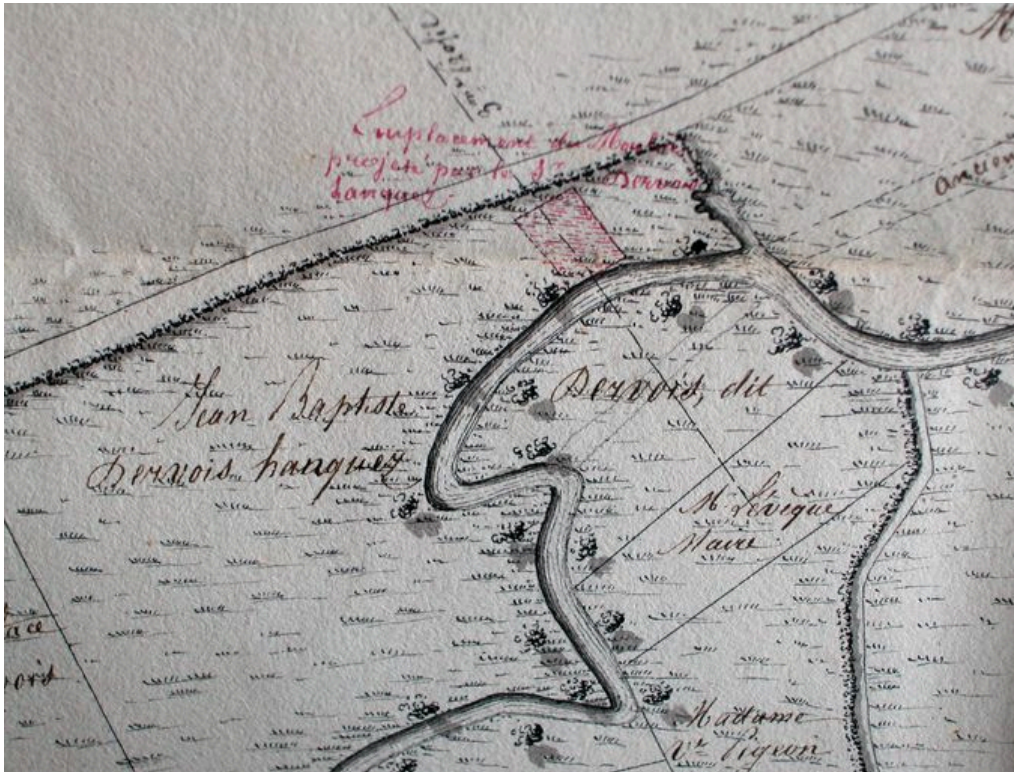 M
Emplacement du Moulin
projeté par le Sr Dervois
hanquez
ancien
Jean Baptiste
Dervois hanquez
Dervois, dit
Mr Lévêque
Maire
Madame
Ve Pigeon